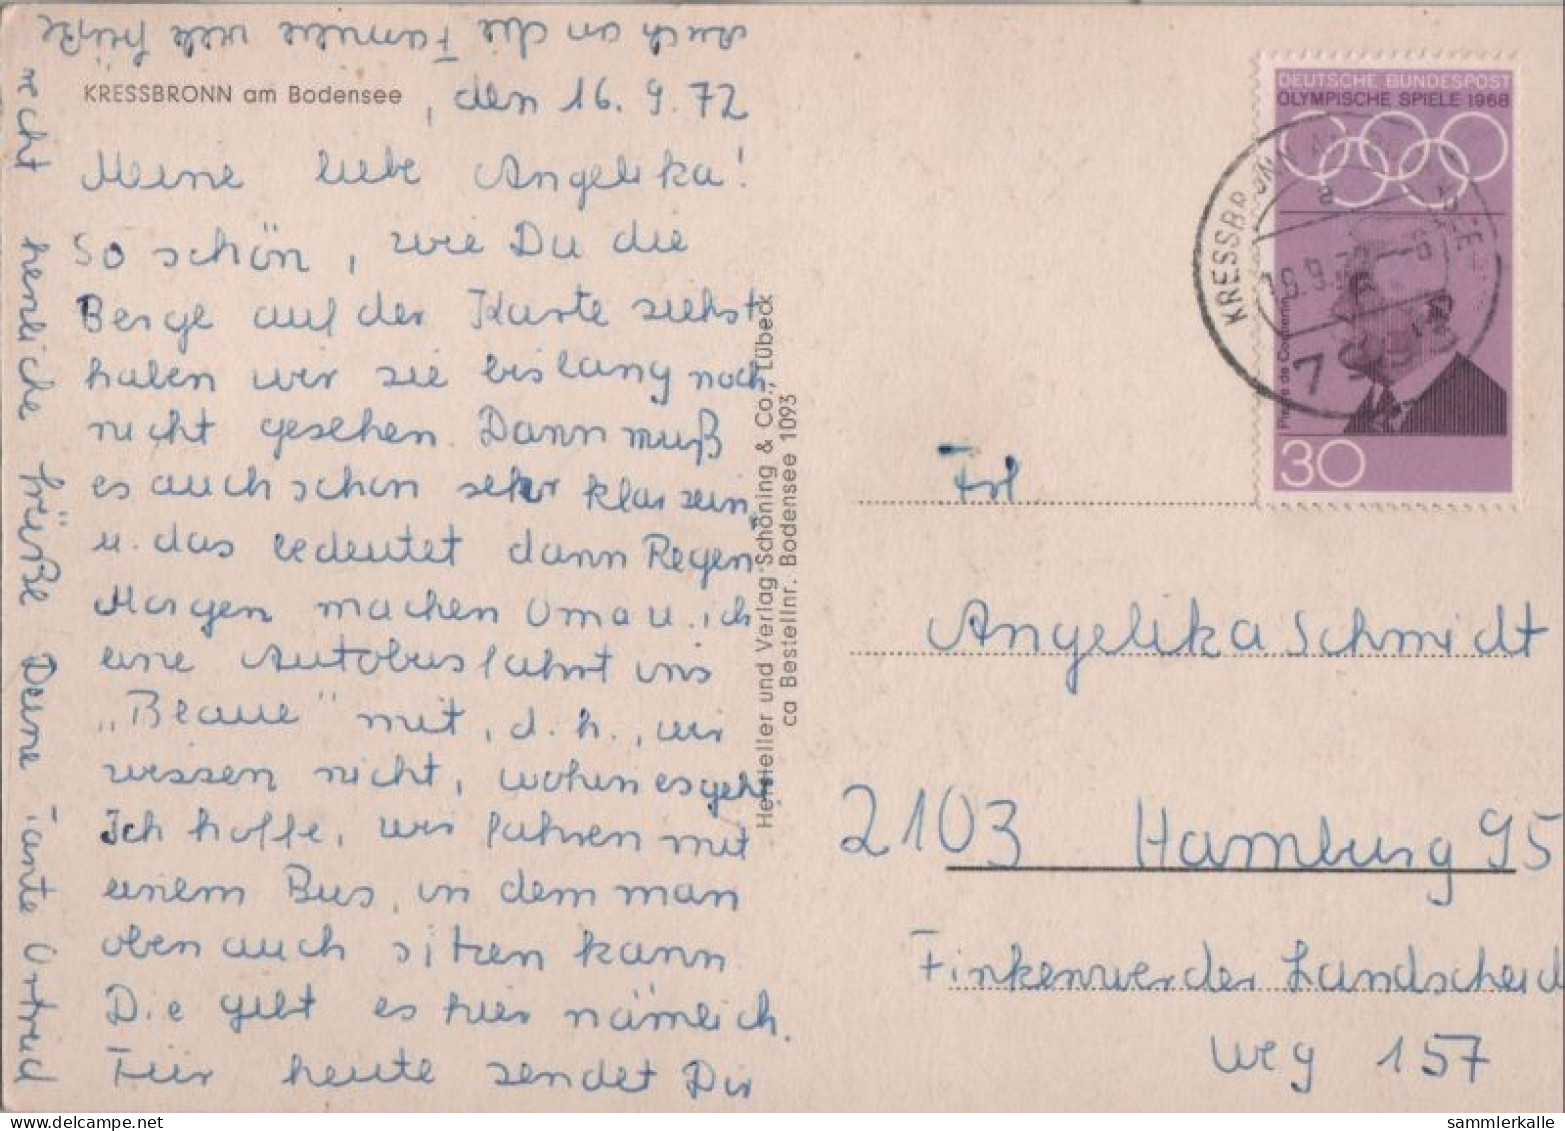 KRESSBRONN am Bodensee
, den 16.9.72
Meine liebe Angelika!
So schön, wie Du die
Berge auf der Karte siehst
haben wir sie bislang noch
nicht gesehen. Dann muß
es auch schon sehr klar sein,
u. das bedeutet dann Regen.
Morgen machen Oma u. ich
eine Autobusfahrt ins
„Blaue" mit, d.h., wir
wissen nicht, wohin es geht.
Ich hoffe, wir fahren mit
einem Bus, in dem man
oben auch sitzen kann.
Die gibt es hier nämlich.
Für heute sendet Dir
recht herzliche Grüße Deine Tante Ortrud
Auch an die Familie viele Grüße
Hersteller und Verlag Schöning & Co., Lübeck
ca Bestellnr. Bodensee 1093
DEUTSCHE BUNDESPOST
OLYMPISCHE SPIELE 1968
Pierre de Coubertin
30
KRESSBRONN
a
7993
Frl
Angelika Schmidt
2103 Hamburg 95
Finkenwerder Landscheid
weg 157
sammlerkalle